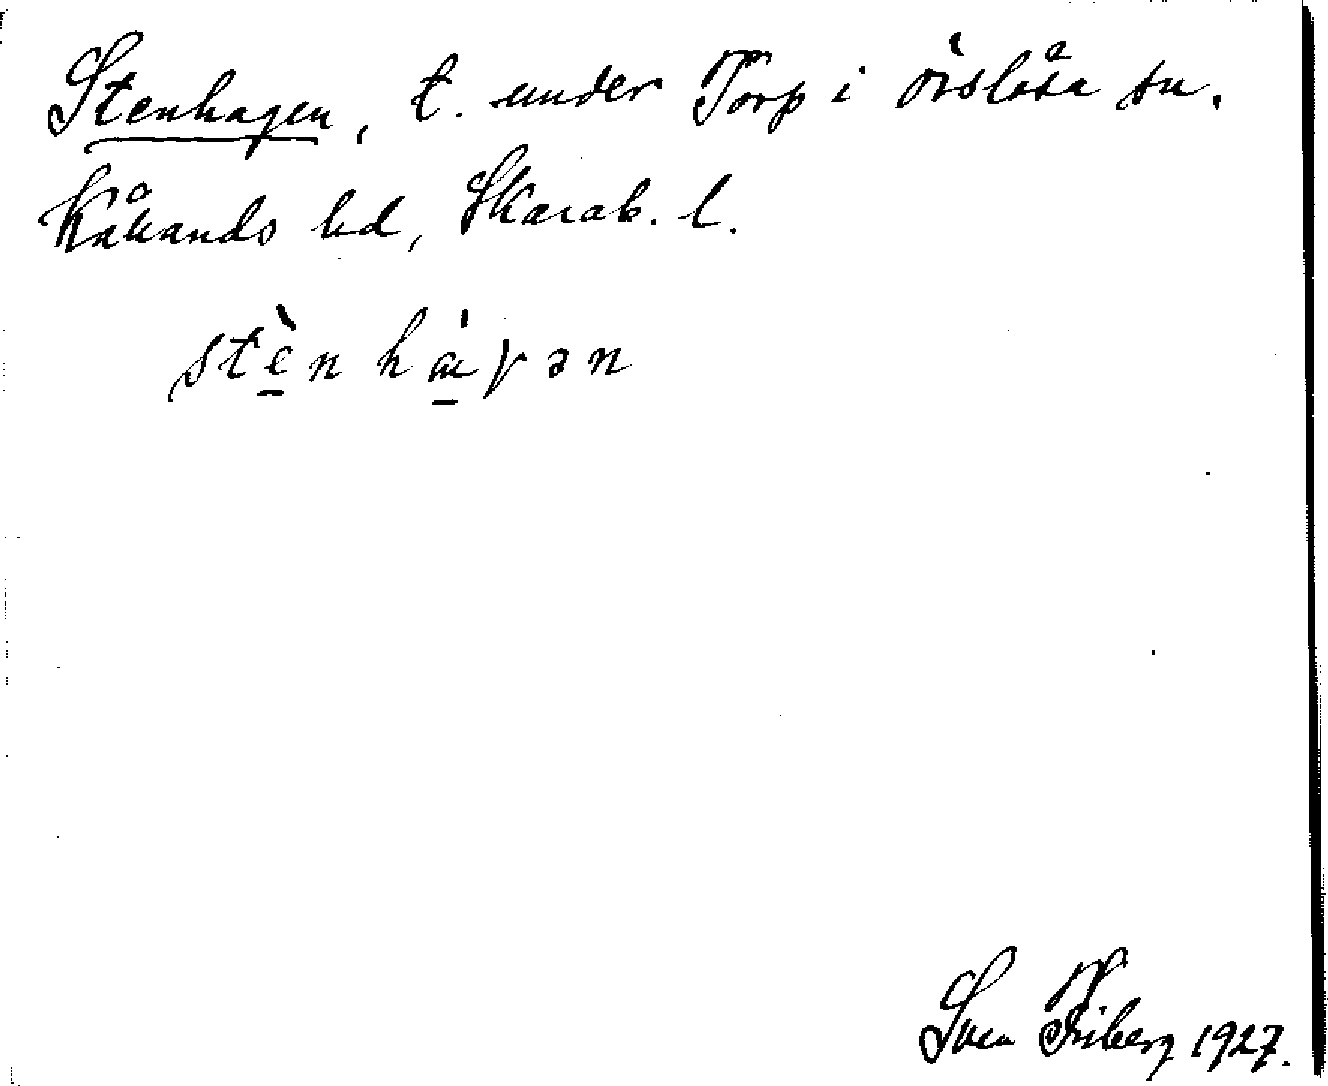 Stenhagen, t. under Torp i Örslösa sn.
Kållands hd, Skarab. l.
stènhávən
Sven Friberg 1927.